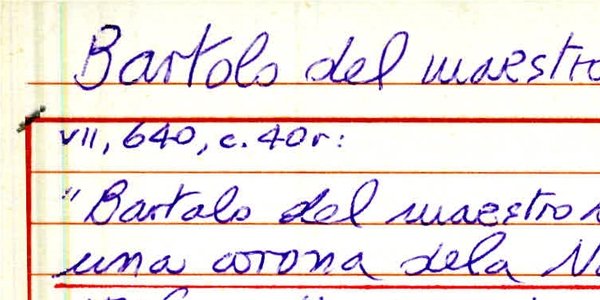 Bartolo del maestro
VII, 640, c. 40r:
"Bartalo del maestro
una corona dela